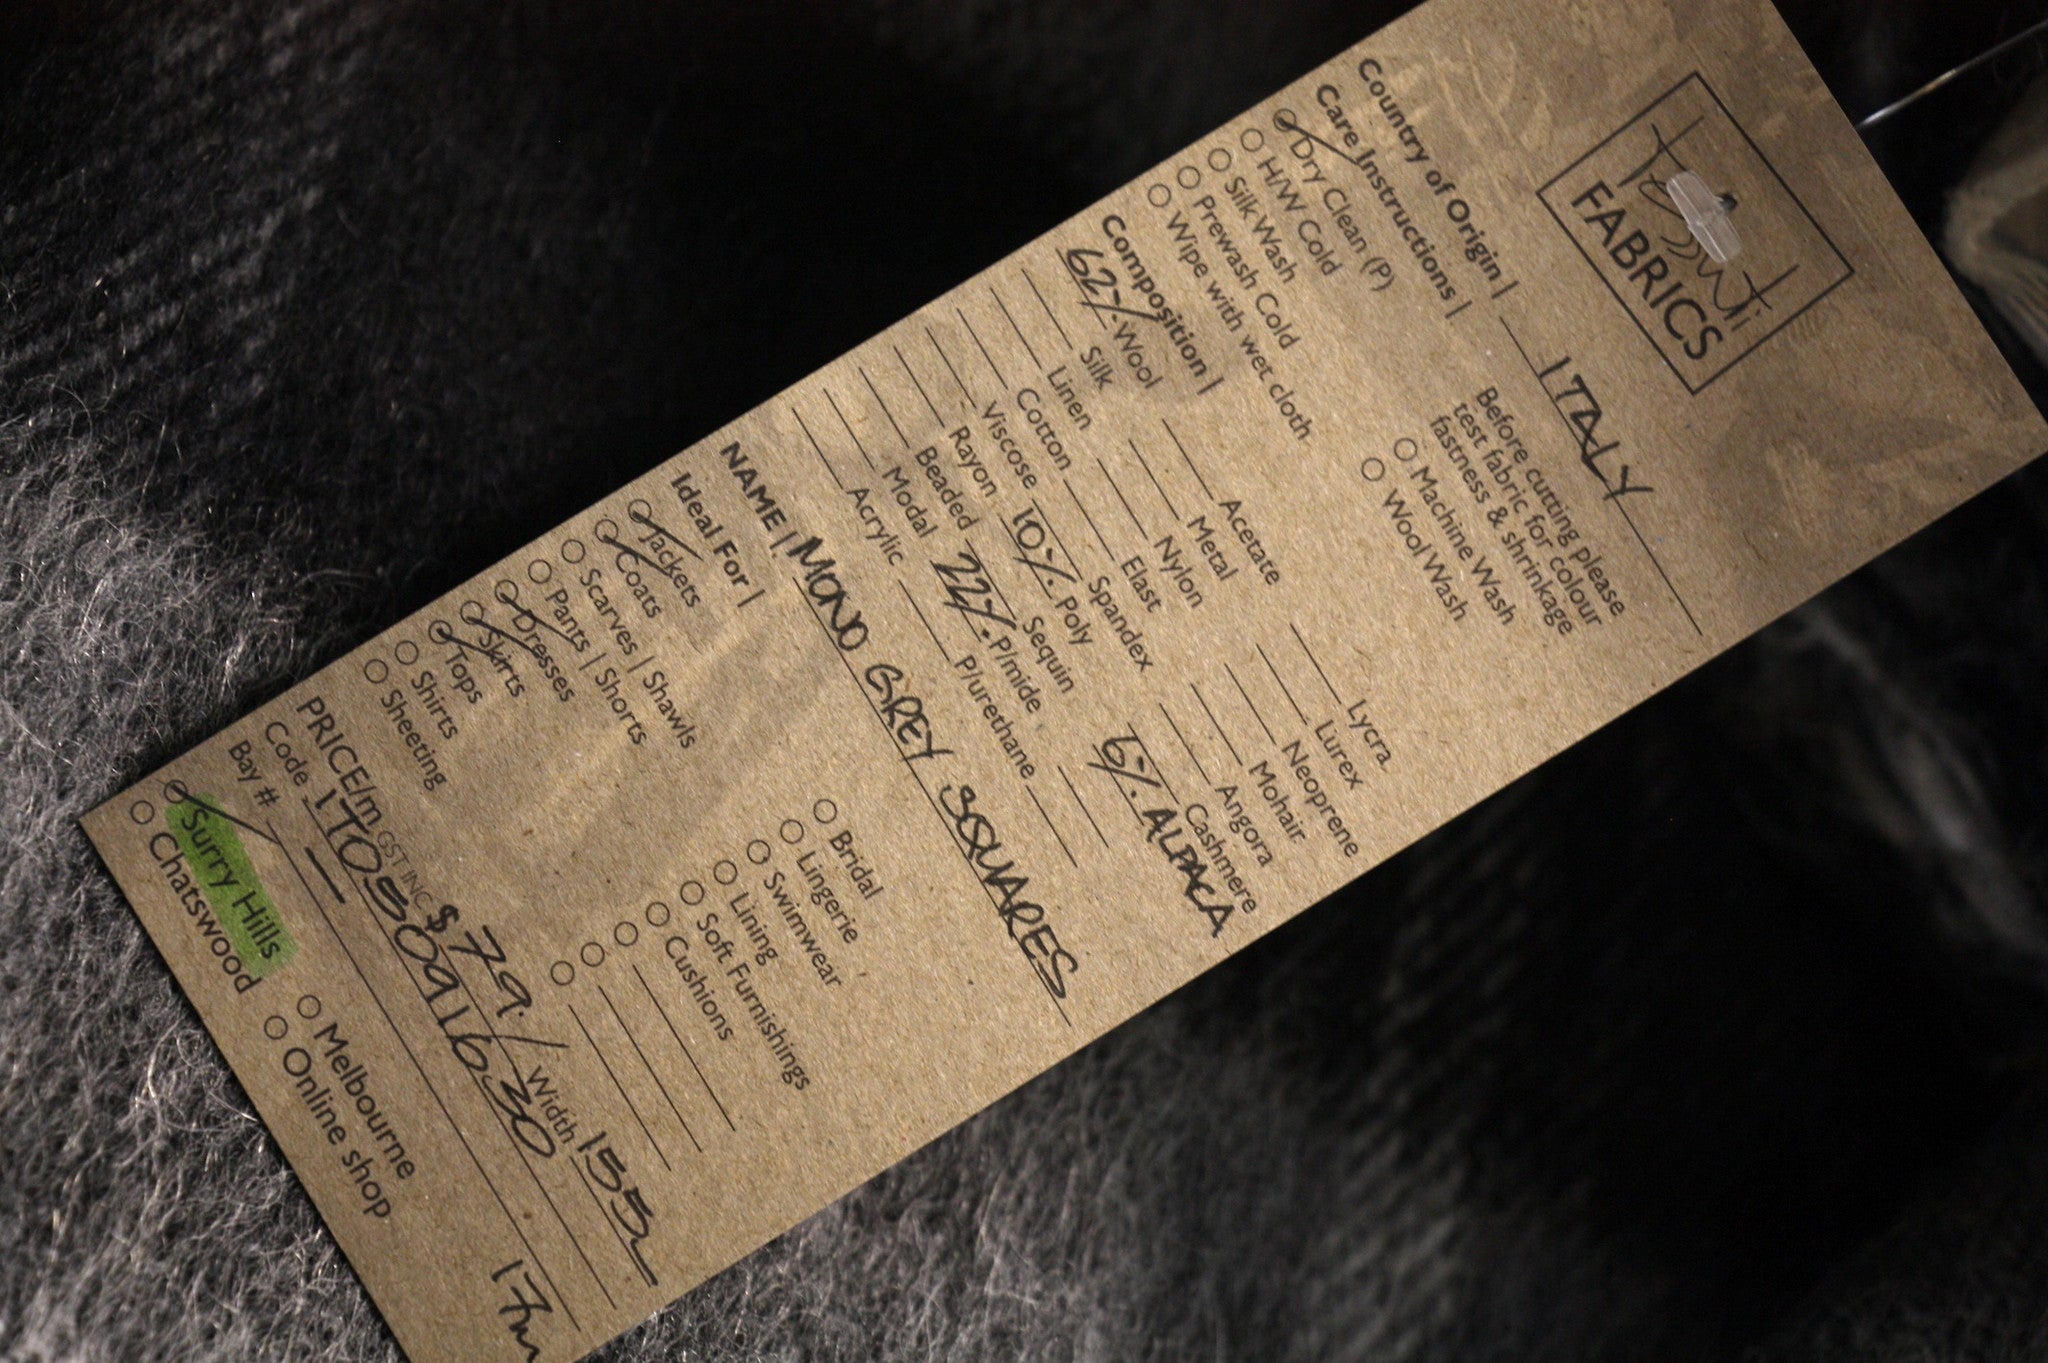 tessuti
FABRICS
Country of Origin | ITALY
Care Instructions |
Before cutting please
test fabric for colour
fastness & shrinkage
Dry Clean (P)
H/W Cold
Silk Wash
Prewash Cold
Wipe with wet cloth
Machine Wash
Wool Wash
Composition |
62% Wool
Silk
Linen
Cotton
Viscose
Rayon
Beaded
Modal
Acrylic
Acetate
Metal
Nylon
Elast
Spandex
10% Poly
Sequin
22% P/mide
P/urethane
Lycra
Lurex
Neoprene
Mohair
Angora
Cashmere
6% ALPACA
NAME | MONO GREY SQUARES
Ideal For |
Jackets
Coats
Scarves | Shawls
Pants | Shorts
Dresses
Skirts
Tops
Shirts
Sheeting
Bridal
Lingerie
Swimwear
Lining
Soft Furnishings
Cushions
PRICE/m GST INC $79./ Width 155
Code ITO5091630
Bay # — 17m
Surry Hills
Chatswood
Melbourne
Online shop